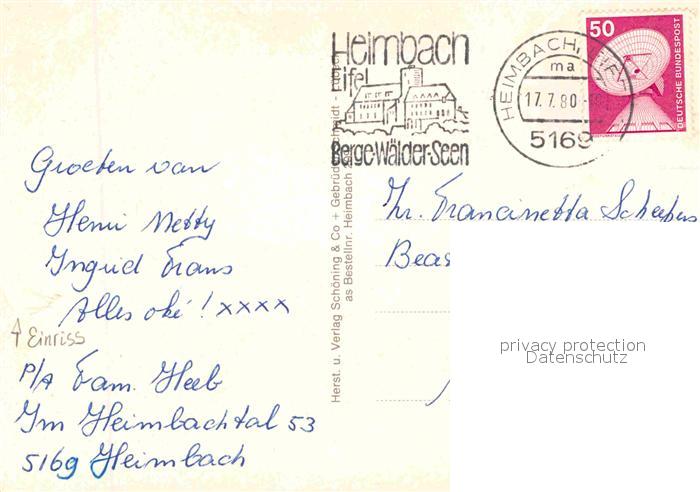 Heimbach
Eifel
Berge-Wälder-Seen
HEIMBACH, EIFEL
ma
17.7.80
5169
50
DEUTSCHE BUNDESPOST
Groeten van
Henri Netty
Ingrid Frans
Alles oké! xxxx
Einriss
P/A Fam. Heeb
Im Heimbachtal 53
5169 Heimbach
Herst. u. Verlag Schöning & Co + Gebrüder Schmidt - Lübeck
as Bestellnr. Heimbach
Francinetta
privacy protection
Datenschutz